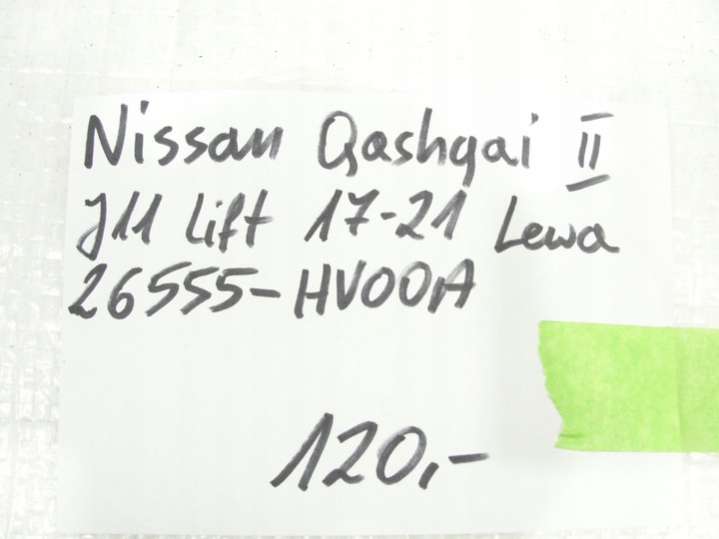 Nissan Qashqai II
J11 Lift 17-21 Lewa
26555-HV00A
120,-